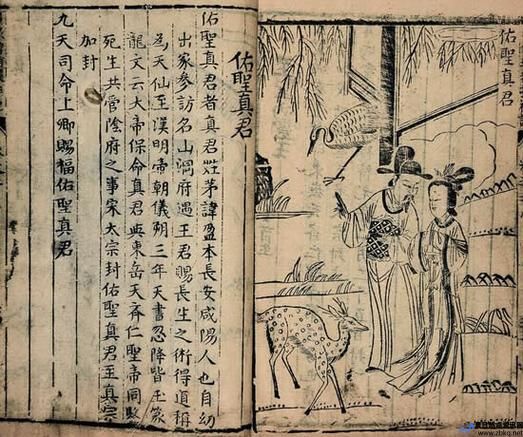 佑聖真君
佑聖真君
佑聖真君者真君姓茅諱盈本長安咸陽人也自幼
出家參訪名山洞府遇王君賜長生之術得道稱
為天仙至漢明帝朝儀朔三年天書忽降皆玉篆
龍文云大帝保命真君與東岳天齊仁聖帝同
死生共管陰府之事宋太宗封佑聖真君至真宗
加封
九天司命上卿賜福佑聖真君
www.zbkq.net